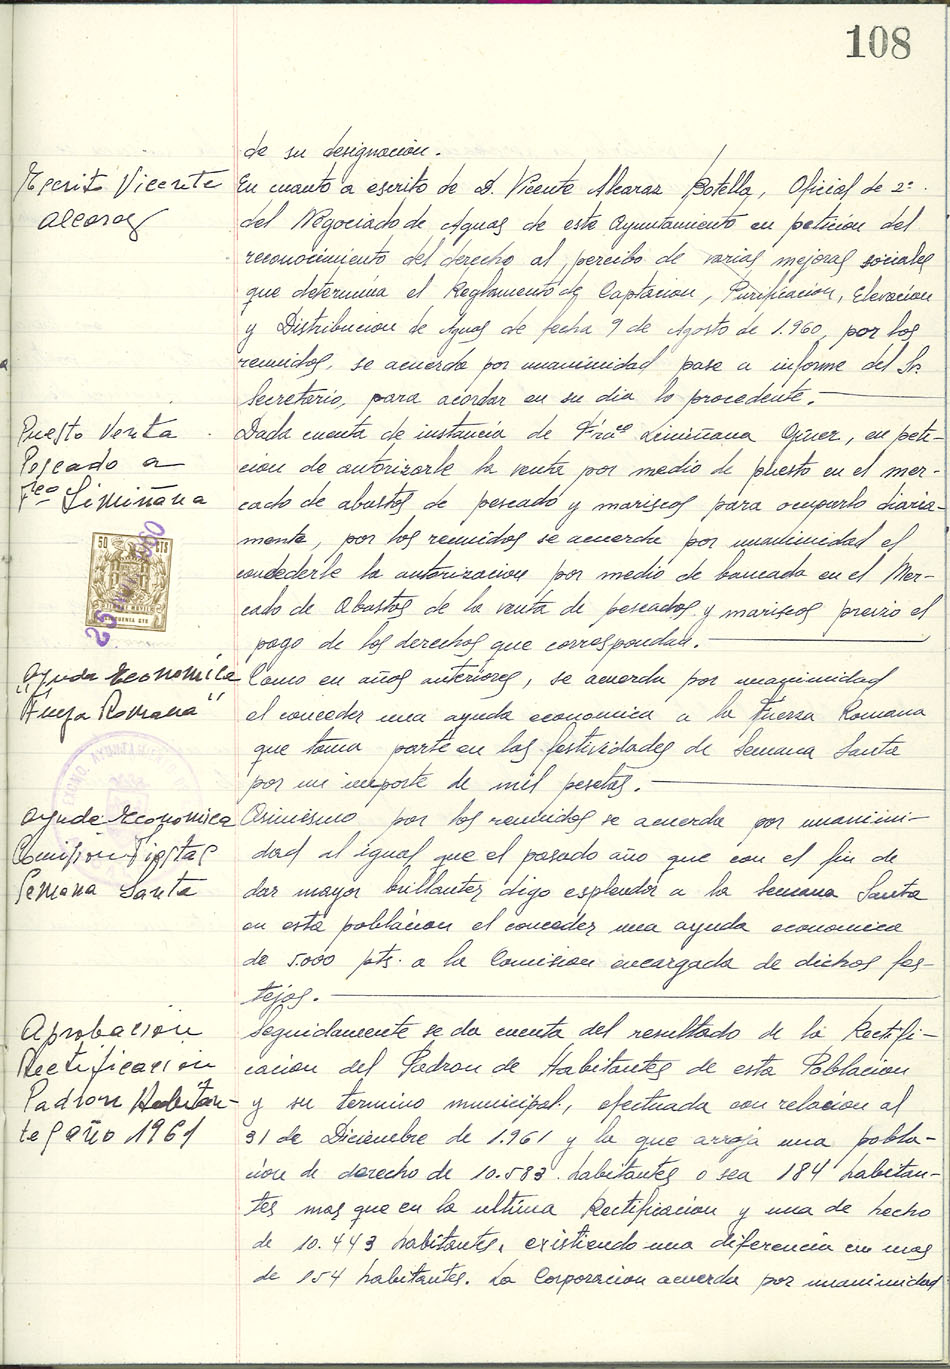 108
de su designación.
Escrito Vicente
Alcaraz
En cuanto a escrito de D. Vicente Alcaraz Botella, Oficial de 2ª.
del Negociado de Aguas de este Ayuntamiento en petición del
reconocimiento del derecho al percibo de varias mejoras sociales
que determina el Reglamento de Captacion, Purificacion, Elevacion
y Distribucion de Aguas de fecha 9 de Agosto de 1.960, por los
reunidos, se acuerda por unanimidad pase a informe del Sr.
Secretario, para acordar en su dia lo procedente.
Puesto Venta
Pescado a
Fco Limiñana
Dada cuenta de instancia de Franco Limiñana Giner, en peti-
cion de autorizarle la venta por medio de puesto en el mer-
cado de abastos de pescado y mariscos para ocuparlo diaria-
mente, por los reunidos se acuerda por unanimidad el
concederle la autorizacion por medio de bancada en el Mer-
cado de Abastos de la venta de pescados y mariscos previo el
pago de los derechos que correspondan.
50 CTS
Ayuda Economica
"Fuerza Romana"
Como en años anteriores, se acuerda por unanimidad
el conceder una ayuda economica a la Fuerza Romana
que toma parte en las festividades de Semana Santa
por un importe de mil pesetas.
Ayuda Economica
Comision Fiestas
Semana Santa
Asimismo por los reunidos se acuerda por unanimi-
dad al igual que el pasado año que con el fin de
dar mayor brillantez digo esplendor a la Semana Santa
en esta poblacion el conceder una ayuda economica
de 5.000 pts. a la Comision encargada de dichos fes-
tejos.
Aprobacion
Rectificacion
Padron Habitan-
tes año 1961
Seguidamente se da cuenta del resultado de la Rectifi-
cacion del Padron de Habitantes de esta Poblacion
y su termino municipal, efectuada con relacion al
31 de Diciembre de 1.961 y la que arroja una pobla-
ción de derecho de 10.583 habitantes o sea 184 habitan-
tes mas que en la ultima Rectificacion y una de hecho
de 10.443 habitantes, existiendo una diferencia en mas
de 154 habitantes. La Corporacion acuerda por unanimidad